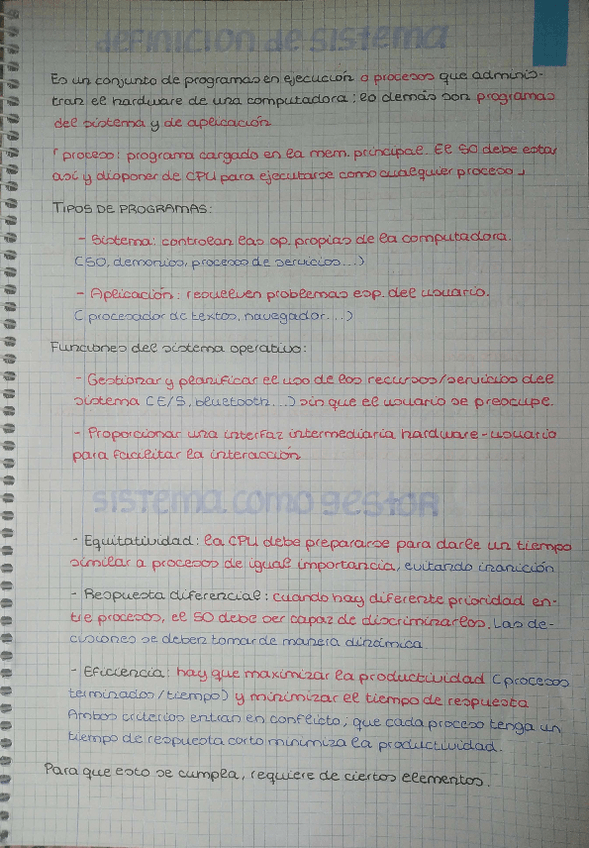 definición de sistema
Es un conjunto de programas en ejecución o procesos que adminis-
tran el hardware de una computadora; lo demás son programas
del sistema y de aplicación
⌈proceso: programa cargado en la mem. principal. El SO debe estar
así y disponer de CPU para ejecutarse como cualquier proceso⌋
TIPOS DE PROGRAMAS:
- Sistema: controlan las op. propias de la computadora.
(SO, demonios, procesos de servicios...)
- Aplicación: resuelven problemas esp. del usuario.
(procesador de textos, navegador...)
Funciones del sistema operativo:
- Gestionar y planificar el uso de los recursos/servicios del
sistema (E/S, bluetooth...) sin que el usuario se preocupe.
- Proporcionar una interfaz intermediaria hardware-usuario
para facilitar la interacción
sistema como gestor
- Equitatividad: la CPU debe prepararse para darle un tiempo
similar a procesos de igual importancia, evitando inanición
- Respuesta diferencial: cuando hay diferente prioridad en-
tre procesos, el SO debe ser capaz de discriminarlos. Las de-
cisiones se deben tomar de manera dinámica.
- Eficiencia: hay que maximizar la productividad (procesos
terminados/tiempo) y minimizar el tiempo de respuesta
Ambos criterios entran en conflicto, que cada proceso tenga un
tiempo de respuesta corto minimiza la productividad.
Para que esto se cumpla, requiere de ciertos elementos.